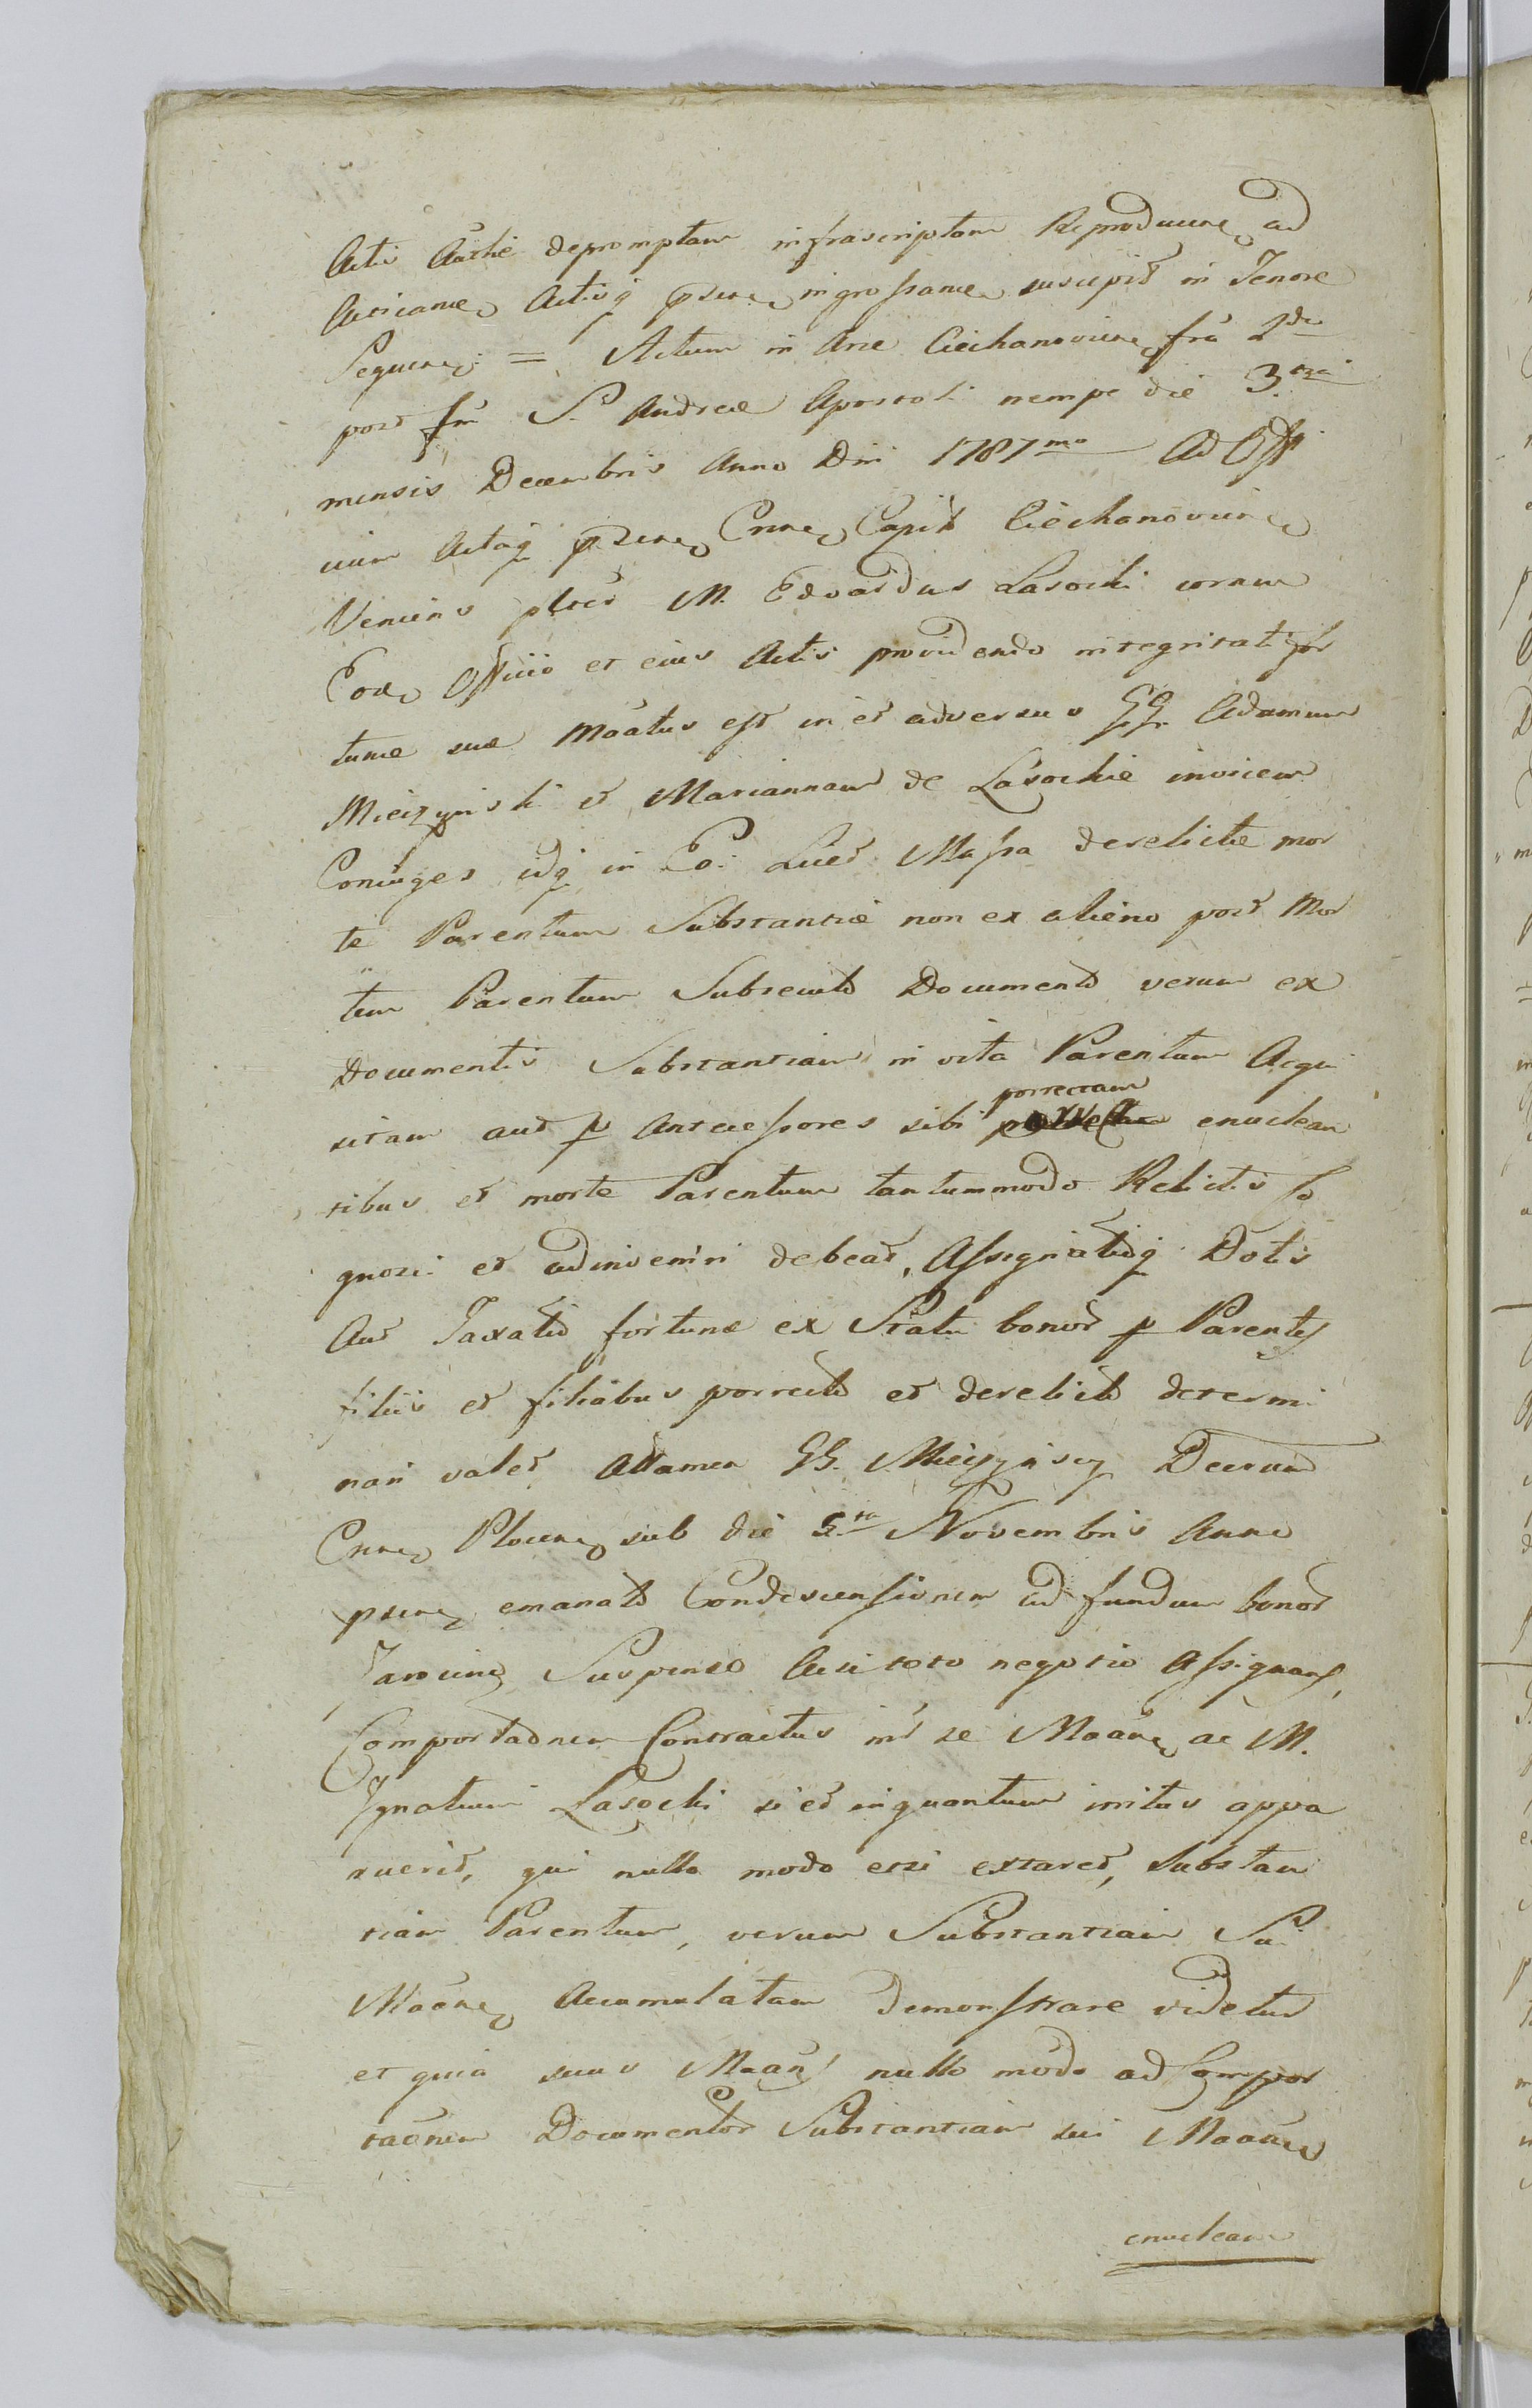 Acti Authe depromptam infrascriptam Reproducen ad
Acticanme Actisq pscne ingrossanme suscepit in Tenore
Sequene = Actum in Arce Ciechanoviene fra 2da
post fm S. Andreæ Apostoli nempe die 3tia
mensis Decembris Anno Dni 1787mo Ad Offi
cium Actaq pscne Cnne Capit Ciechanoviene
Veniens pltr M. Edvardus Lasocki coram
Eode Officio et eius Actis providendo integritati for
tunæ suæ Moatus est in et adversus GG. Adamum
Mieczynski et Mariannam de Lasockie invicem
Coniuges idq in Eo. Licet Massa derelictæ mor
te Parentum Substantiæ non ex alieno post Mor
tem Parentum Subsecuto Documento verum ex
Documentis Substantiam in vita Parentum Acqui
sitam aut p Antecessores sibi porrectam enuclean
tibus et morte Parentum tantummodo Relictis co
gnosci et adinveniri debeat, Assignatioq Dotis
Aut Taxatio fortunæ ex Statu bonor p Parentes
filiis et filiabus porrecto et derelicto determi
nari valet Attamen GG. Mieczynscy Decreto
Cnne Plocene sub die 5ta Novembris Anni
pscne emanato Condescensionem ad fundum bonor
Suspenso toto negotio Assignans,
Comportaonem Contractus int se Moane ac M.
Ignatium Lasocki si et inquantum initus appa
ruerit, qui nullo modo etsi extaret, Substan
tiam Parentum, verum Substantiam Sui
Moane Accumulatam demonstrare videtur
et quia suus Moans nullo modo ad Compor
taonem Documentor Substantiam sui Moane
enuclean